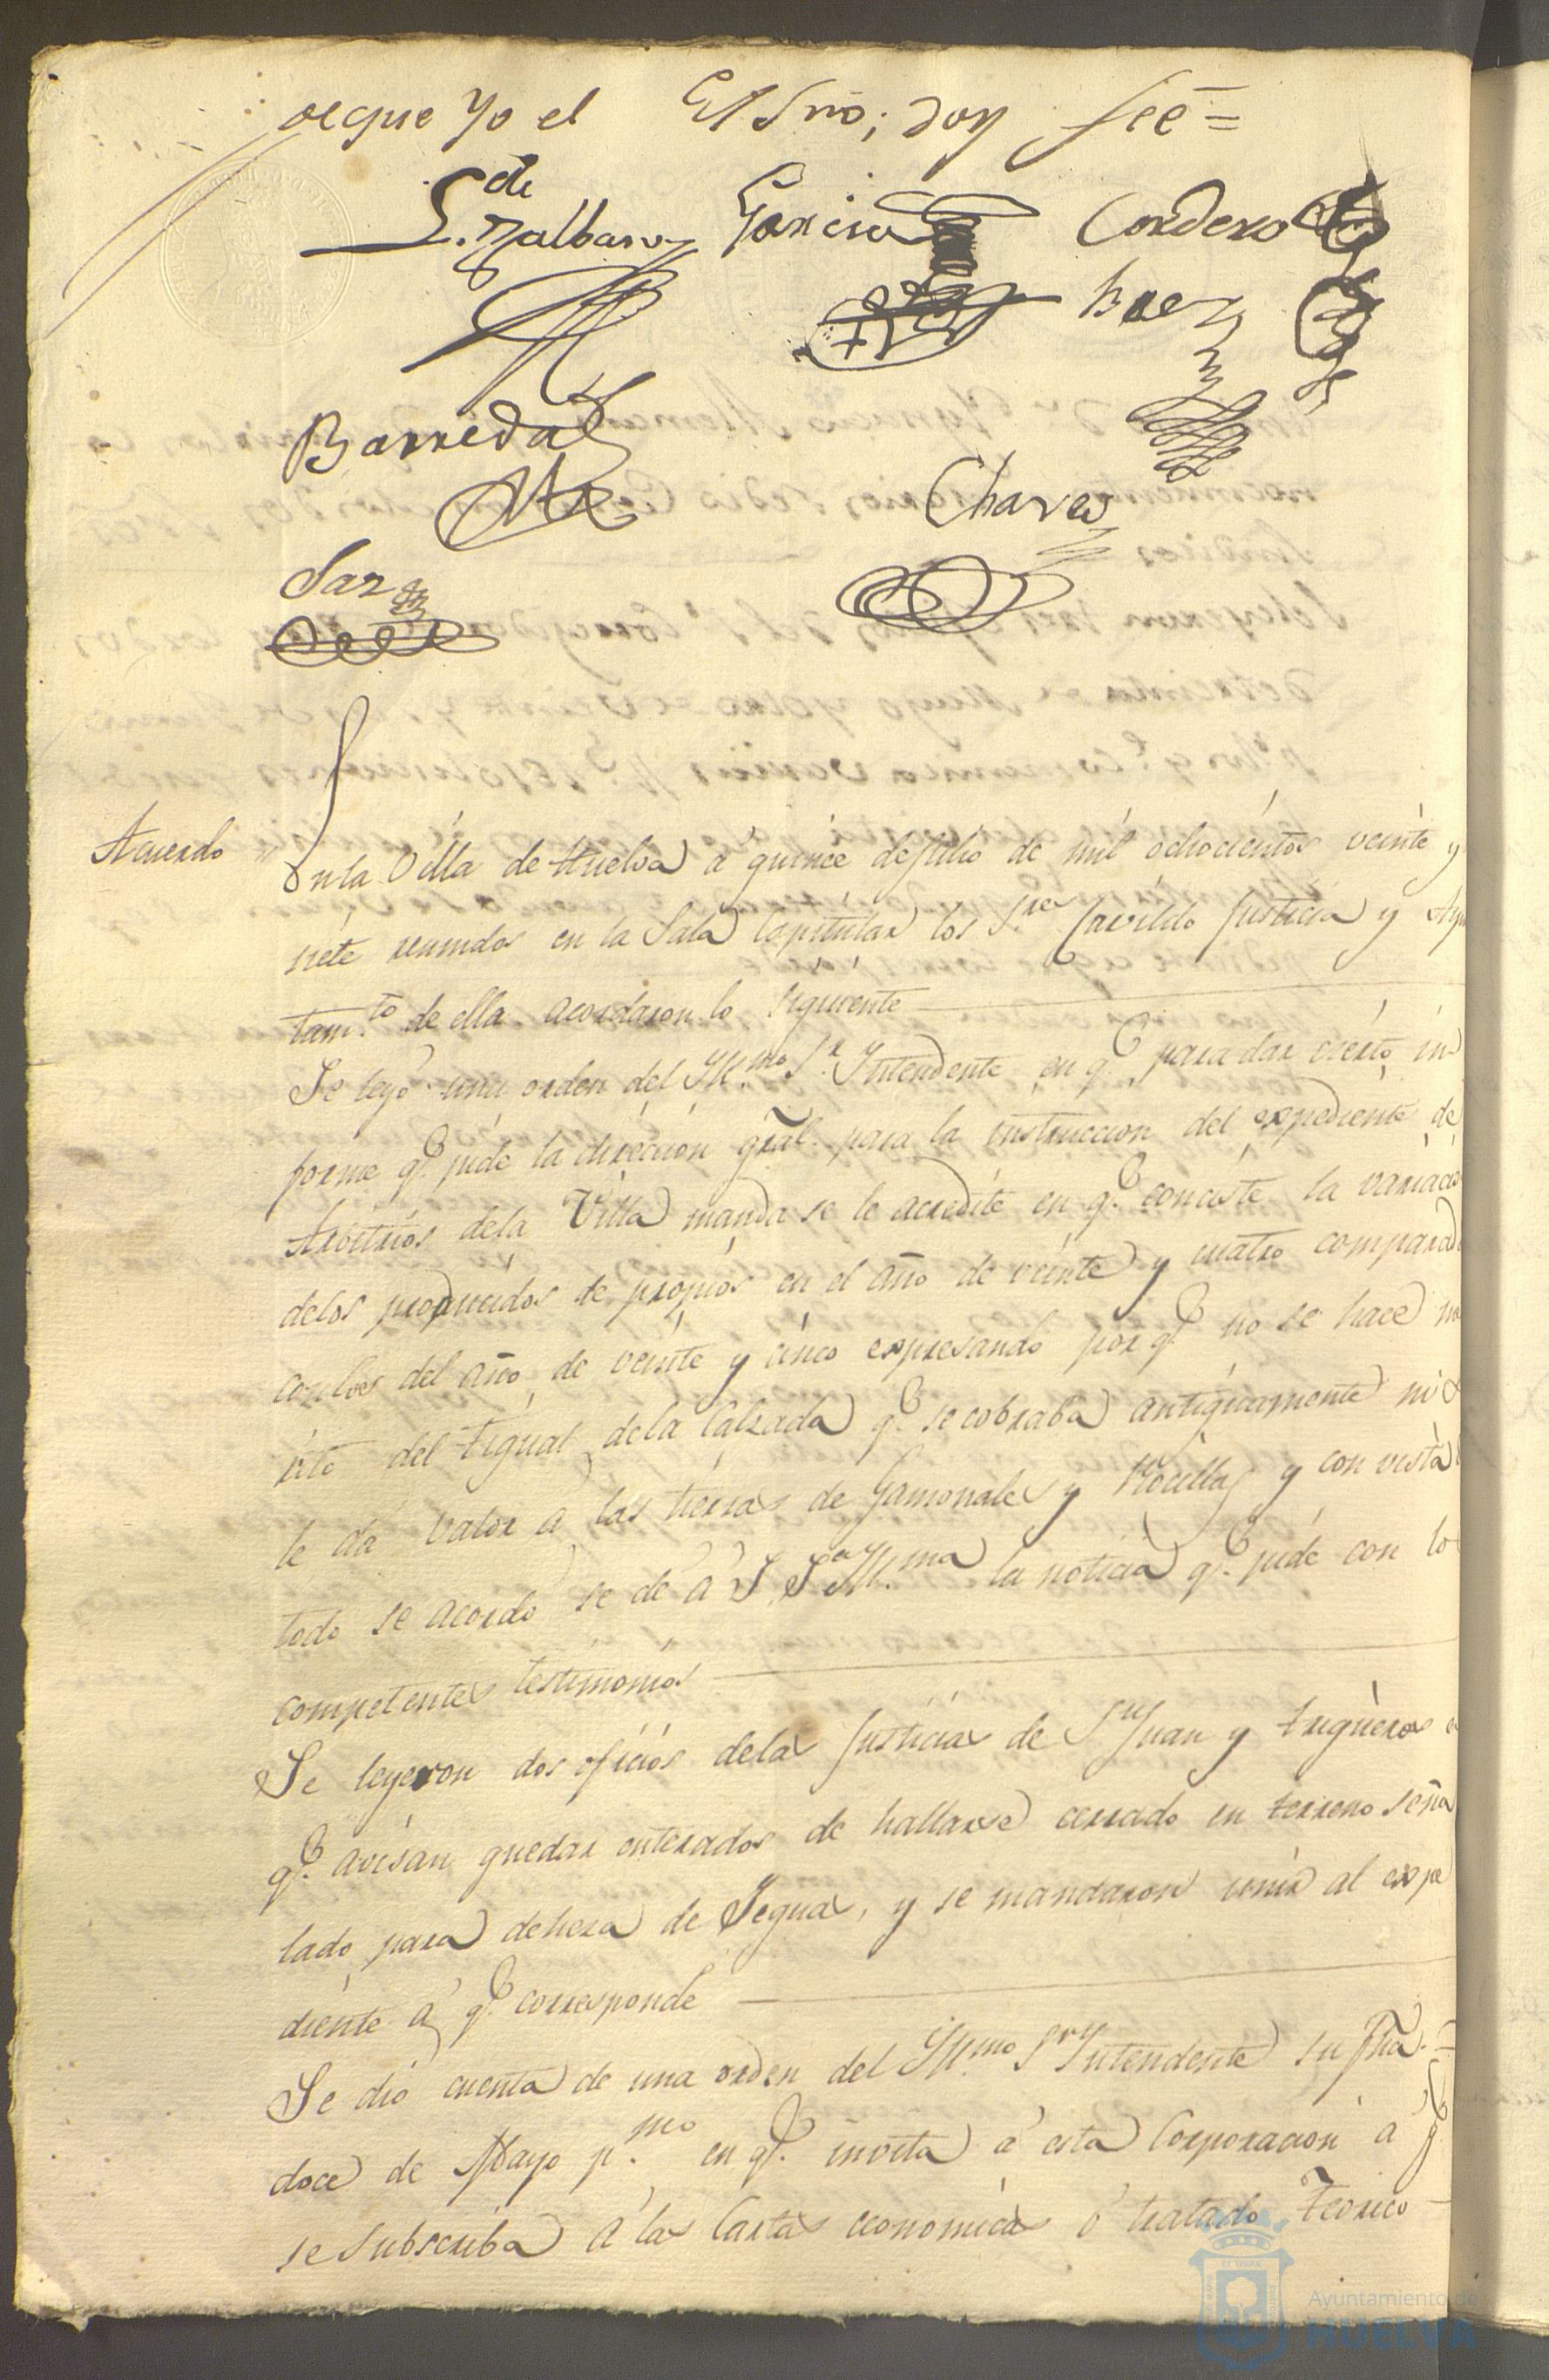 de que Yo el Essno; doy feé =
S. de Malbar
Garcia
Cordero
Baez
Barreda
Chaves
Saz
Acuerdo
En la Villa de Huelva á quince de Julio de mil ochocientos veinte y
siete reunidos en la Sala Capitular los S.res Cavildo Justicia y Ayun
tam.to de ella acordaron lo siguiente
Se leyó una orden del Yll.mo S.r Yntendente en q.e para dar cierto in
forme q.e pide la dirección gral. para la instruccion del expediente de
Arbitrios dela Villa manda se le acredite en q.e concite la variacio
delos producidos de propios en el año de veinte y cuatro comparado
con los del año de veinte y cinco expresando por q.e no se hace me
rito del tigual dela Calzada q.e se cobraba antiguamente ni
le da valor a las tierras de Gamonales y Rocillas y con vista
todo se acordo se de á S. S.a Yll.ma la noticia q.e pide con lo
competentes testimonios
Se leyeron dos oficios delas Justicias de S.n Juan y Trigueros e
q.e avisan quedar enterados de hallarse cerrado en terreno seña
lado para deheza de Yeguas, y se mandaron unir al expe
diente á q.e corresponde
Se dió cuenta de una orden del Yll.mo S.or Yntendente su fha.
doce de Mayo p.mo en q.e invita á esta Corporacion á q.e
se subscriba á las Cartas economicas ó tratado Teorico
Ayuntamiento de
HUELVA